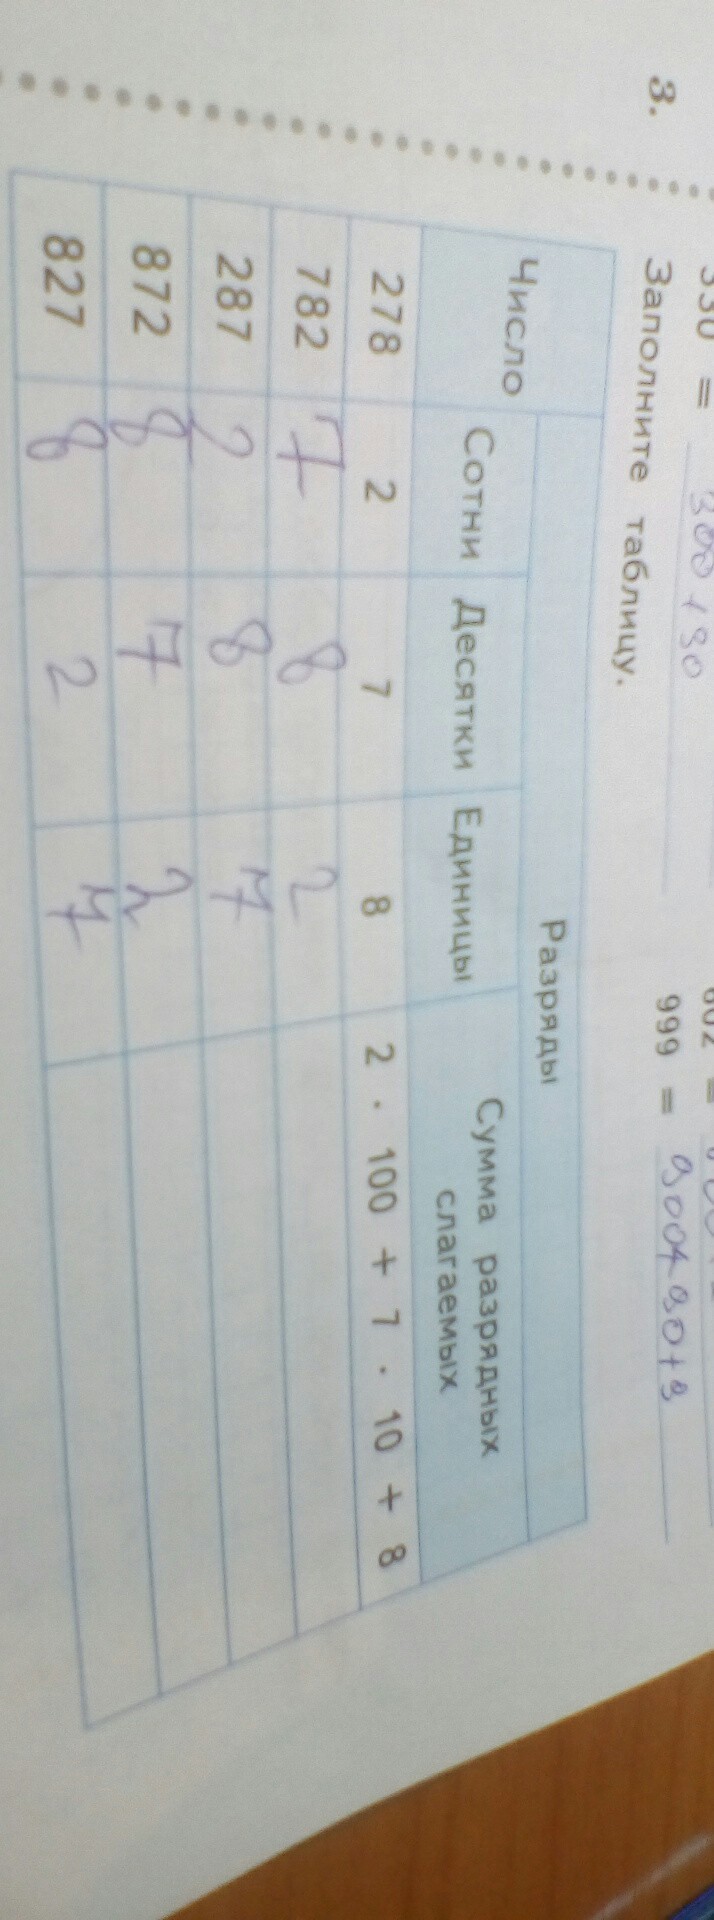 330 = 300+30
999 = 900+90+9
3. Заполните таблицу.
Число Разряды
Сотни Десятки Единицы Сумма разрядных
слагаемых
278 2 7 8 2 · 100 + 7 · 10 + 8
782 7 8 2
287 2 8 7
872 8 7 2
827 8 2 7